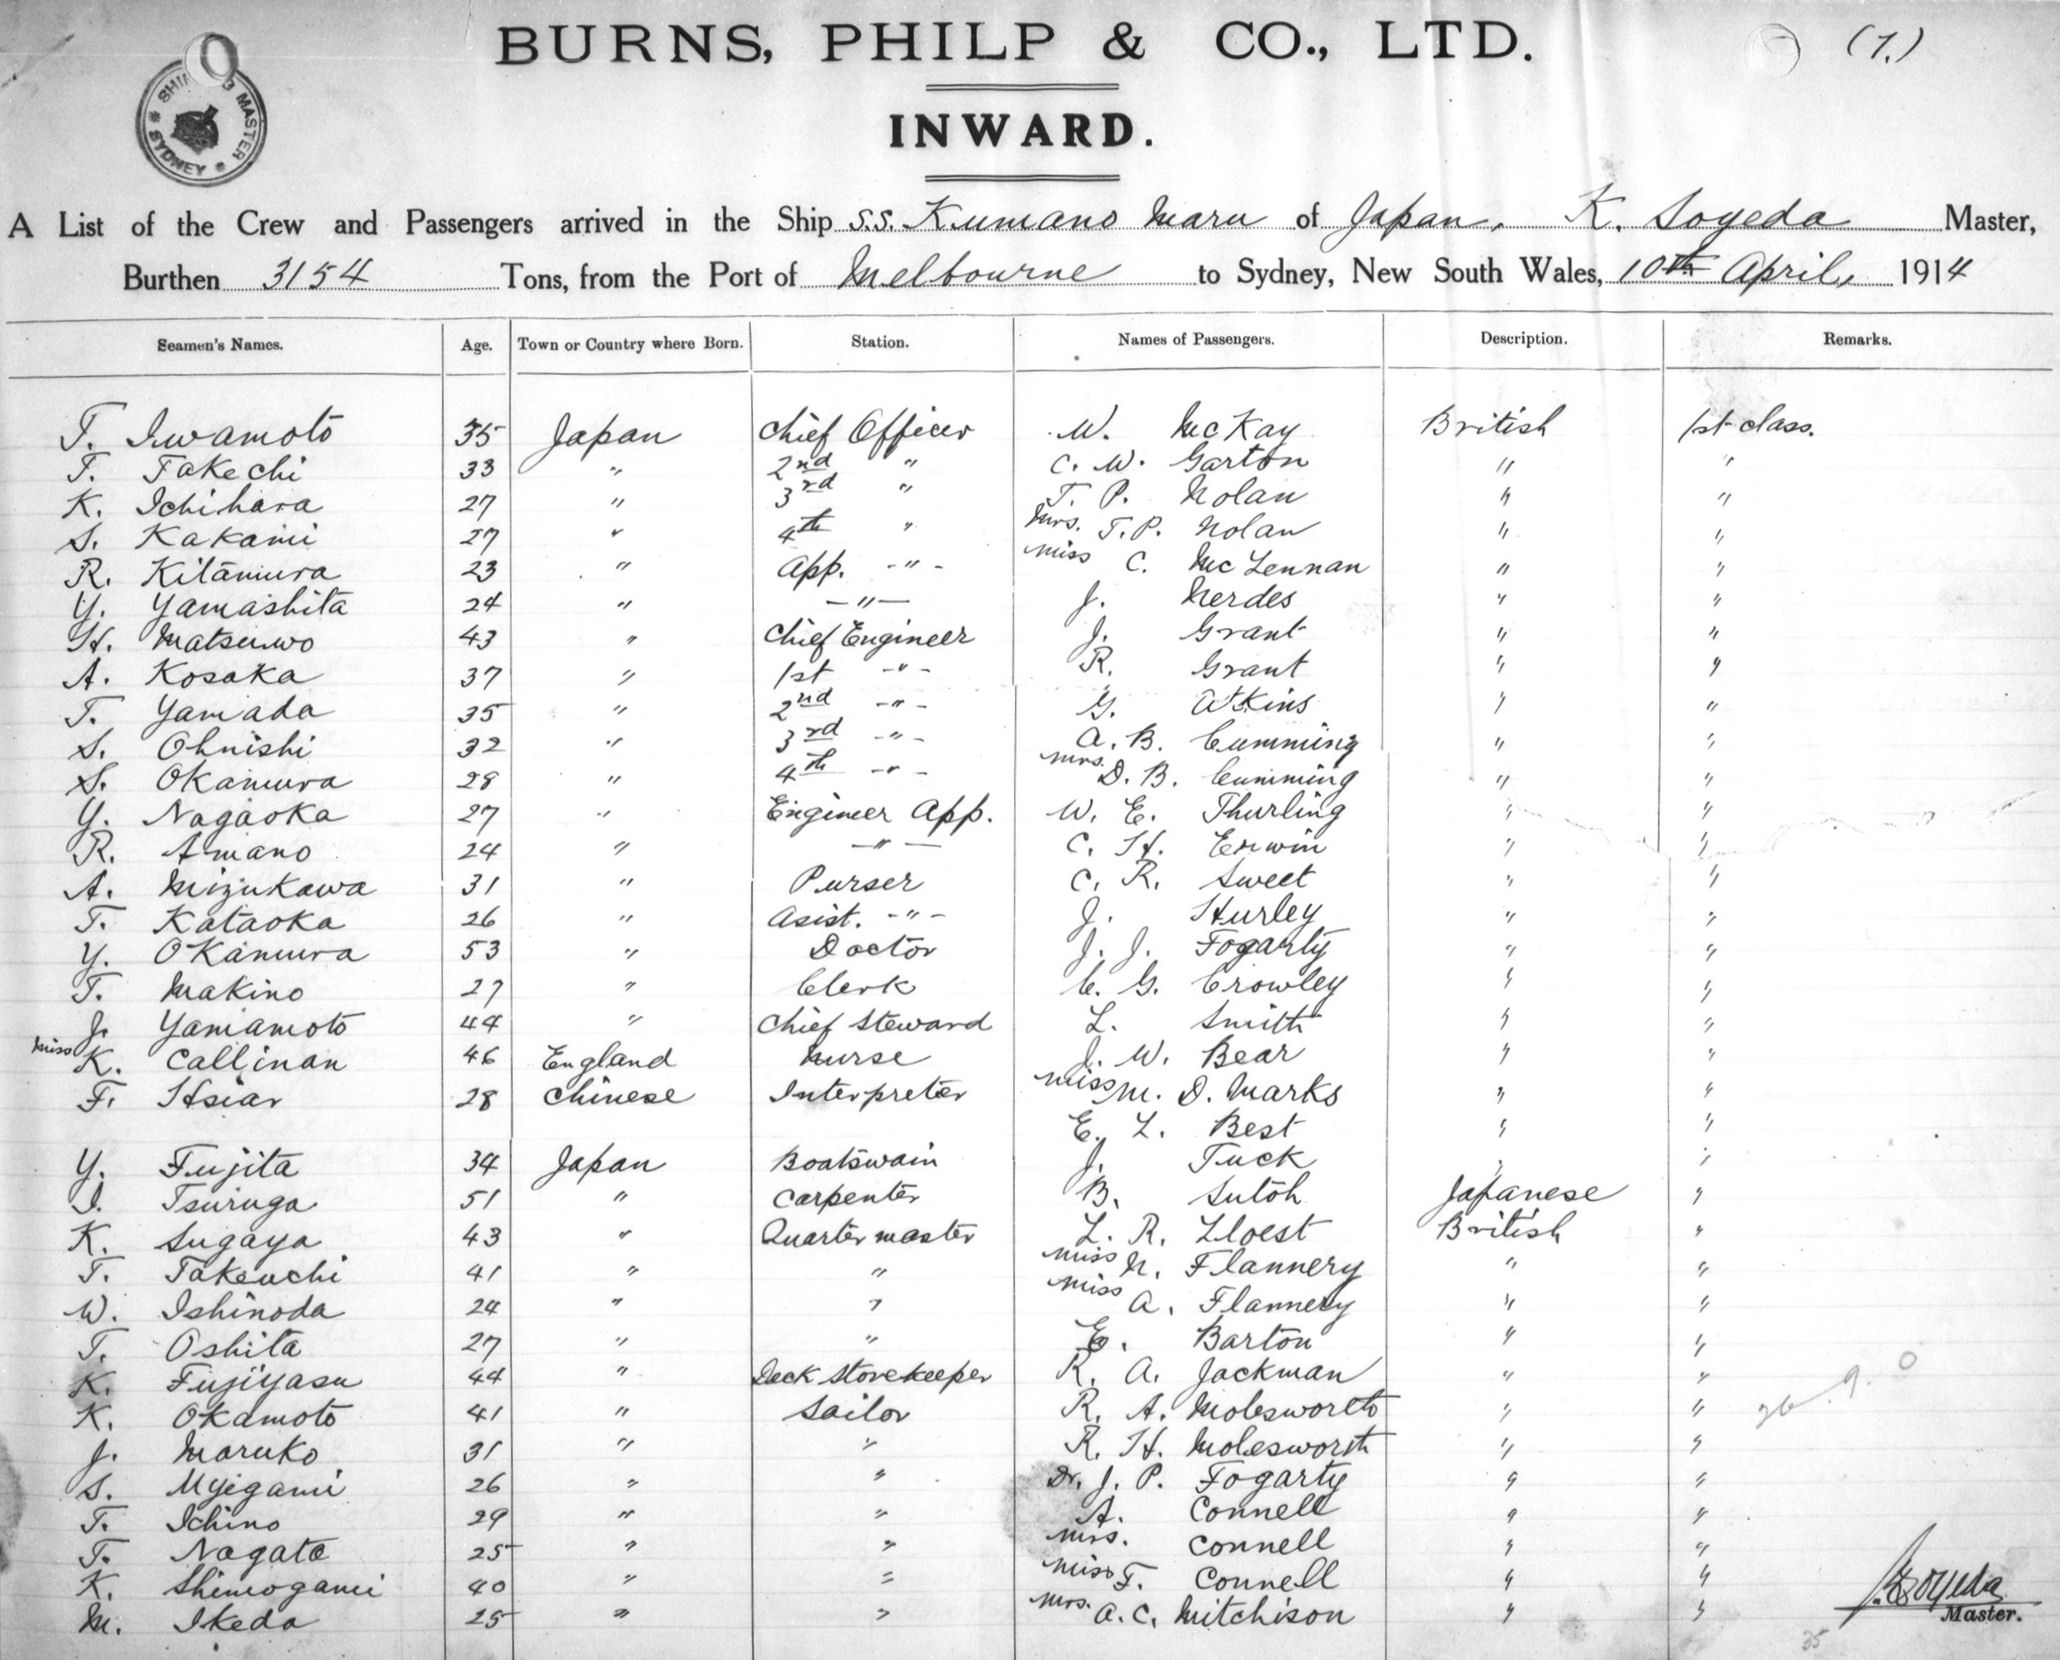 BURNS, PHILP & CO., LTD.
(1.)
SHIPPING MASTER
* SYDNEY *
INWARD.
A List of the Crew and Passengers arrived in the Ship S.S. Kumano Maru of Japan, K. Soyeda Master,
Burthen 3154 Tons, from the Port of Melbourne to Sydney, New South Wales, 10th April, 1914
Seamen's Names. Age. Town or Country where Born. Station. Names of Passengers. Description. Remarks.
T. Iwamoto 35 Japan Chief Officer W. McKay British 1st class.
T. Takechi 33 " 2nd " C. W. Garton " "
K. Ichihara 27 " 3rd " T. P. Nolan " "
S. Kakami 27 " 4th " Mrs. T.P. Nolan " "
R. Kitamura 23 " App. -"- Miss C. McLennan " "
Y. Yamashita 24 " -"- J. Nerdes " "
H. Matsuwo 43 " Chief Engineer J. Grant " "
A. Kosaka 37 " 1st -"- R. Grant " "
T. Yamada 35 " 2nd -"- G. Atkins " "
S. Ohnishi 32 " 3rd -"- A. B. Cumming " "
S. Okamura 28 " 4th -"- Mrs. D. B. Cumming " "
Y. Nagaoka 27 " Engineer App. W. E. Thurling " "
R. Amano 24 " -"- C. H. Erwin " "
A. Mizukawa 31 " Purser C. R. Sweet " "
T. Kataoka 26 " Asist. -"- J. Hurley " "
Y. Okamura 53 " Doctor J. J. Fogarty " "
T. Makino 27 " Clerk C. G. Crowley " "
J. Yamamoto 44 " Chief Steward L. Smith " "
Miss K. Callinan 46 England Nurse J. W. Bear " "
F. Hsiar 28 Chinese Interpreter Miss M. D. Marks " "
E. L. Best " "
Y. Fujita 34 Japan Boatswain J. Tuck " "
I. Tsuruga 51 " Carpenter B. Sutoh Japanese "
K. Sugaya 43 " Quarter master L. R. Lloest British "
T. Takeuchi 41 " " Miss N. Flannery " "
W. Ishinoda 24 " " Miss A. Flannery " "
T. Oshita 27 " " E. Barton " "
K. Fujiyasu 44 " Deck Storekeeper R. A. Jackman " "
K. Okamoto 41 " Sailor R. A. Molesworth " "
J. Maruko 31 " " R. H. Molesworth " "
S. Myegami 26 " " Dr. J. P. Fogarty " "
T. Ichino 29 " " A. Connell " "
T. Nagata 25 " " Mrs. Connell " "
K. Shimogami 40 " " Miss F. Connell " "
M. Ikeda 25 " " Mrs. A. C. Mitchison " "
K. Soyeda
Master.
35